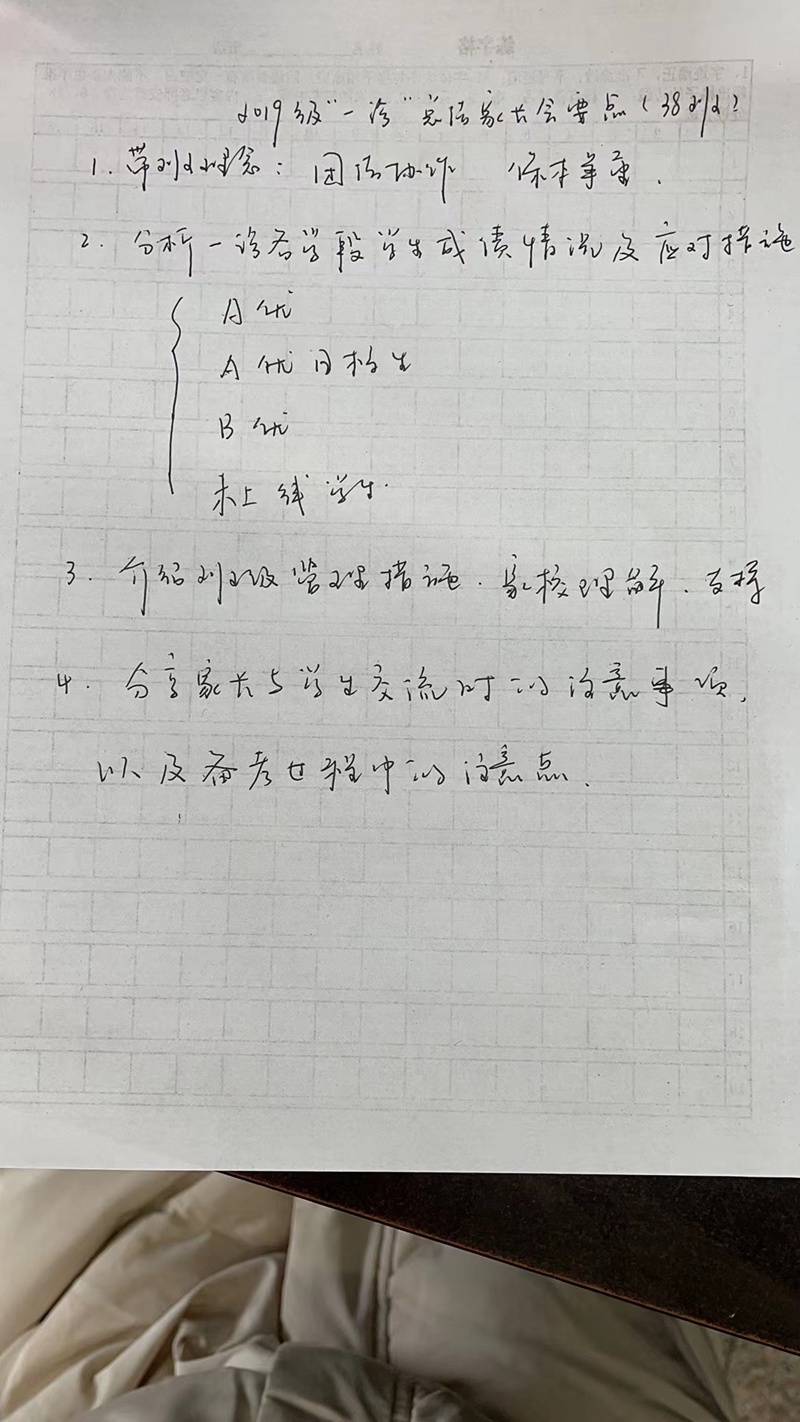 2019级“一诊”总结家长会要点(38班)
1. 带班理念: 团结协作 保本争重.
2. 分析一诊各学段学生成绩情况及应对措施
A优
A优目标生
B优
未上线学生.
3. 介绍班级管理措施.家校理解.支持
4. 分享家长与学生交流时的注意事项,
以及备考过程中的注意点.